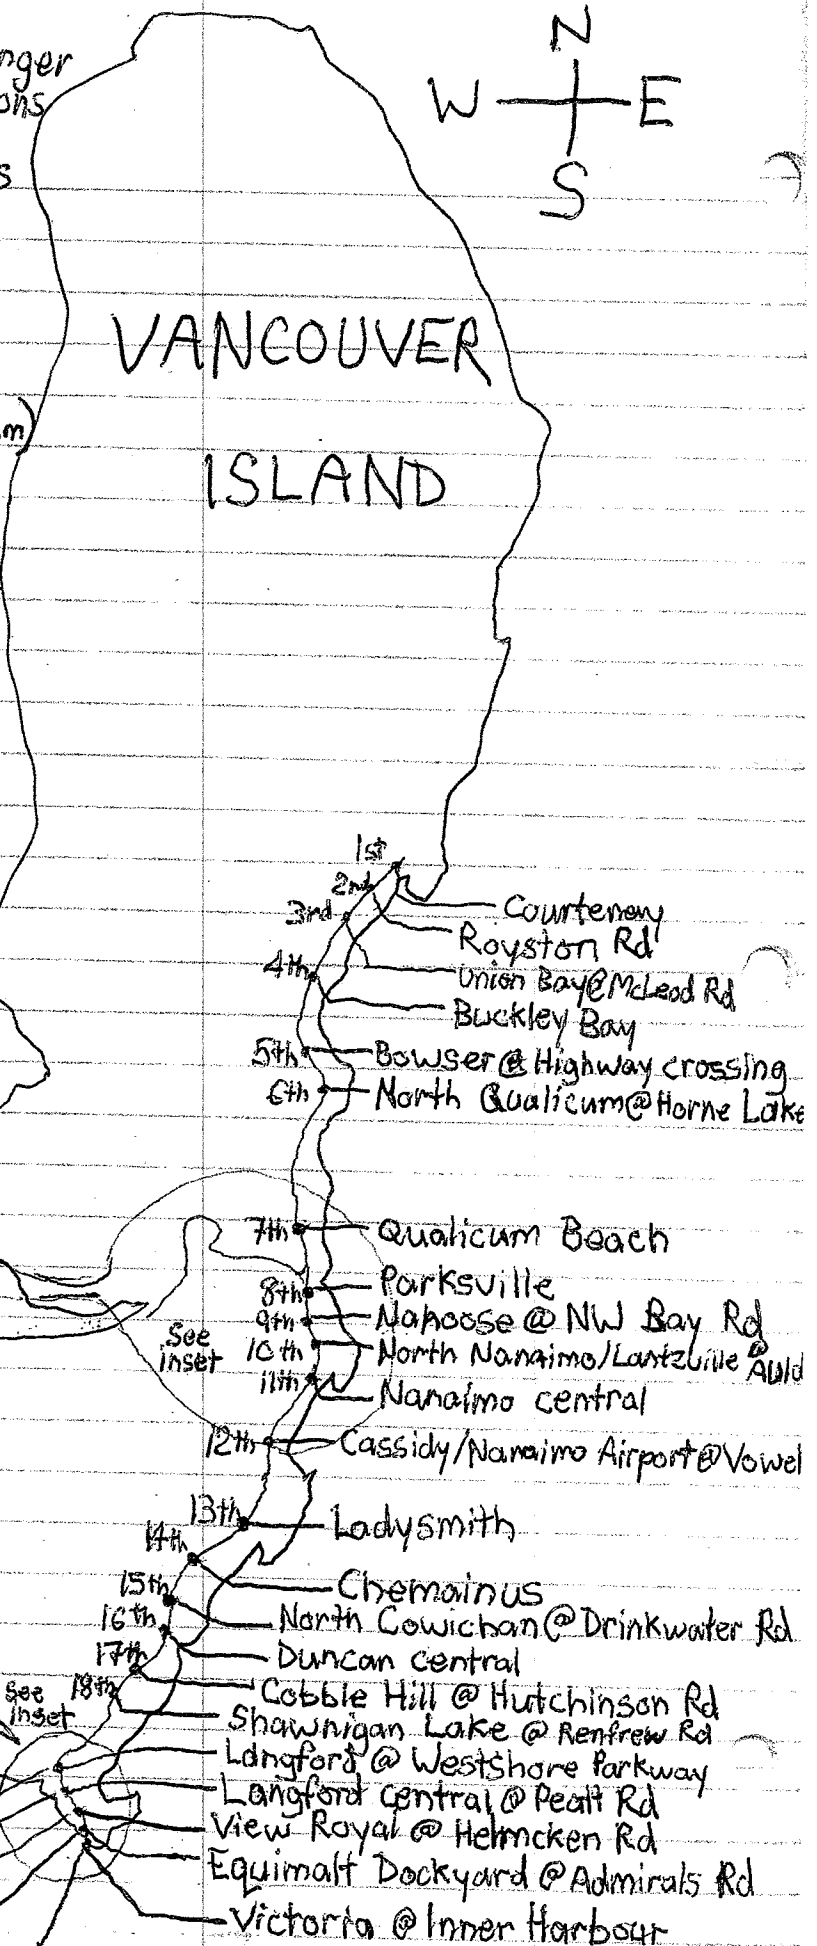 nger
ons
s
m)
N
W E
S
VANCOUVER
ISLAND
1st
2nd
3rd
4th
5th
6th
7th
8th
9th
10th
11th
12th
13th
14th
15th
16th
17th
18th
Courtenay
Royston Rd
Union Bay@McLeod Rd
Buckley Bay
Bowser@Highway crossing
North Qualicum@Horne Lake
Qualicum Beach
Parksville
Nanoose @ NW Bay Rd
North Nanaimo/Lantzville @
Auld
Nanaimo central
Cassidy/Nanaimo Airport@Vowel
Ladysmith
Chemainus
North Cowichan@Drinkwater Rd
Duncan central
Cobble Hill @ Hutchinson Rd
Shawnigan Lake @ Renfrew Rd
Langford @ Westshore Parkway
Langford central @ Peatt Rd
View Royal @ Helmcken Rd
Equimalt Dockyard @ Admirals Rd
Victoria @ Inner Harbour
See
inset
see
inset